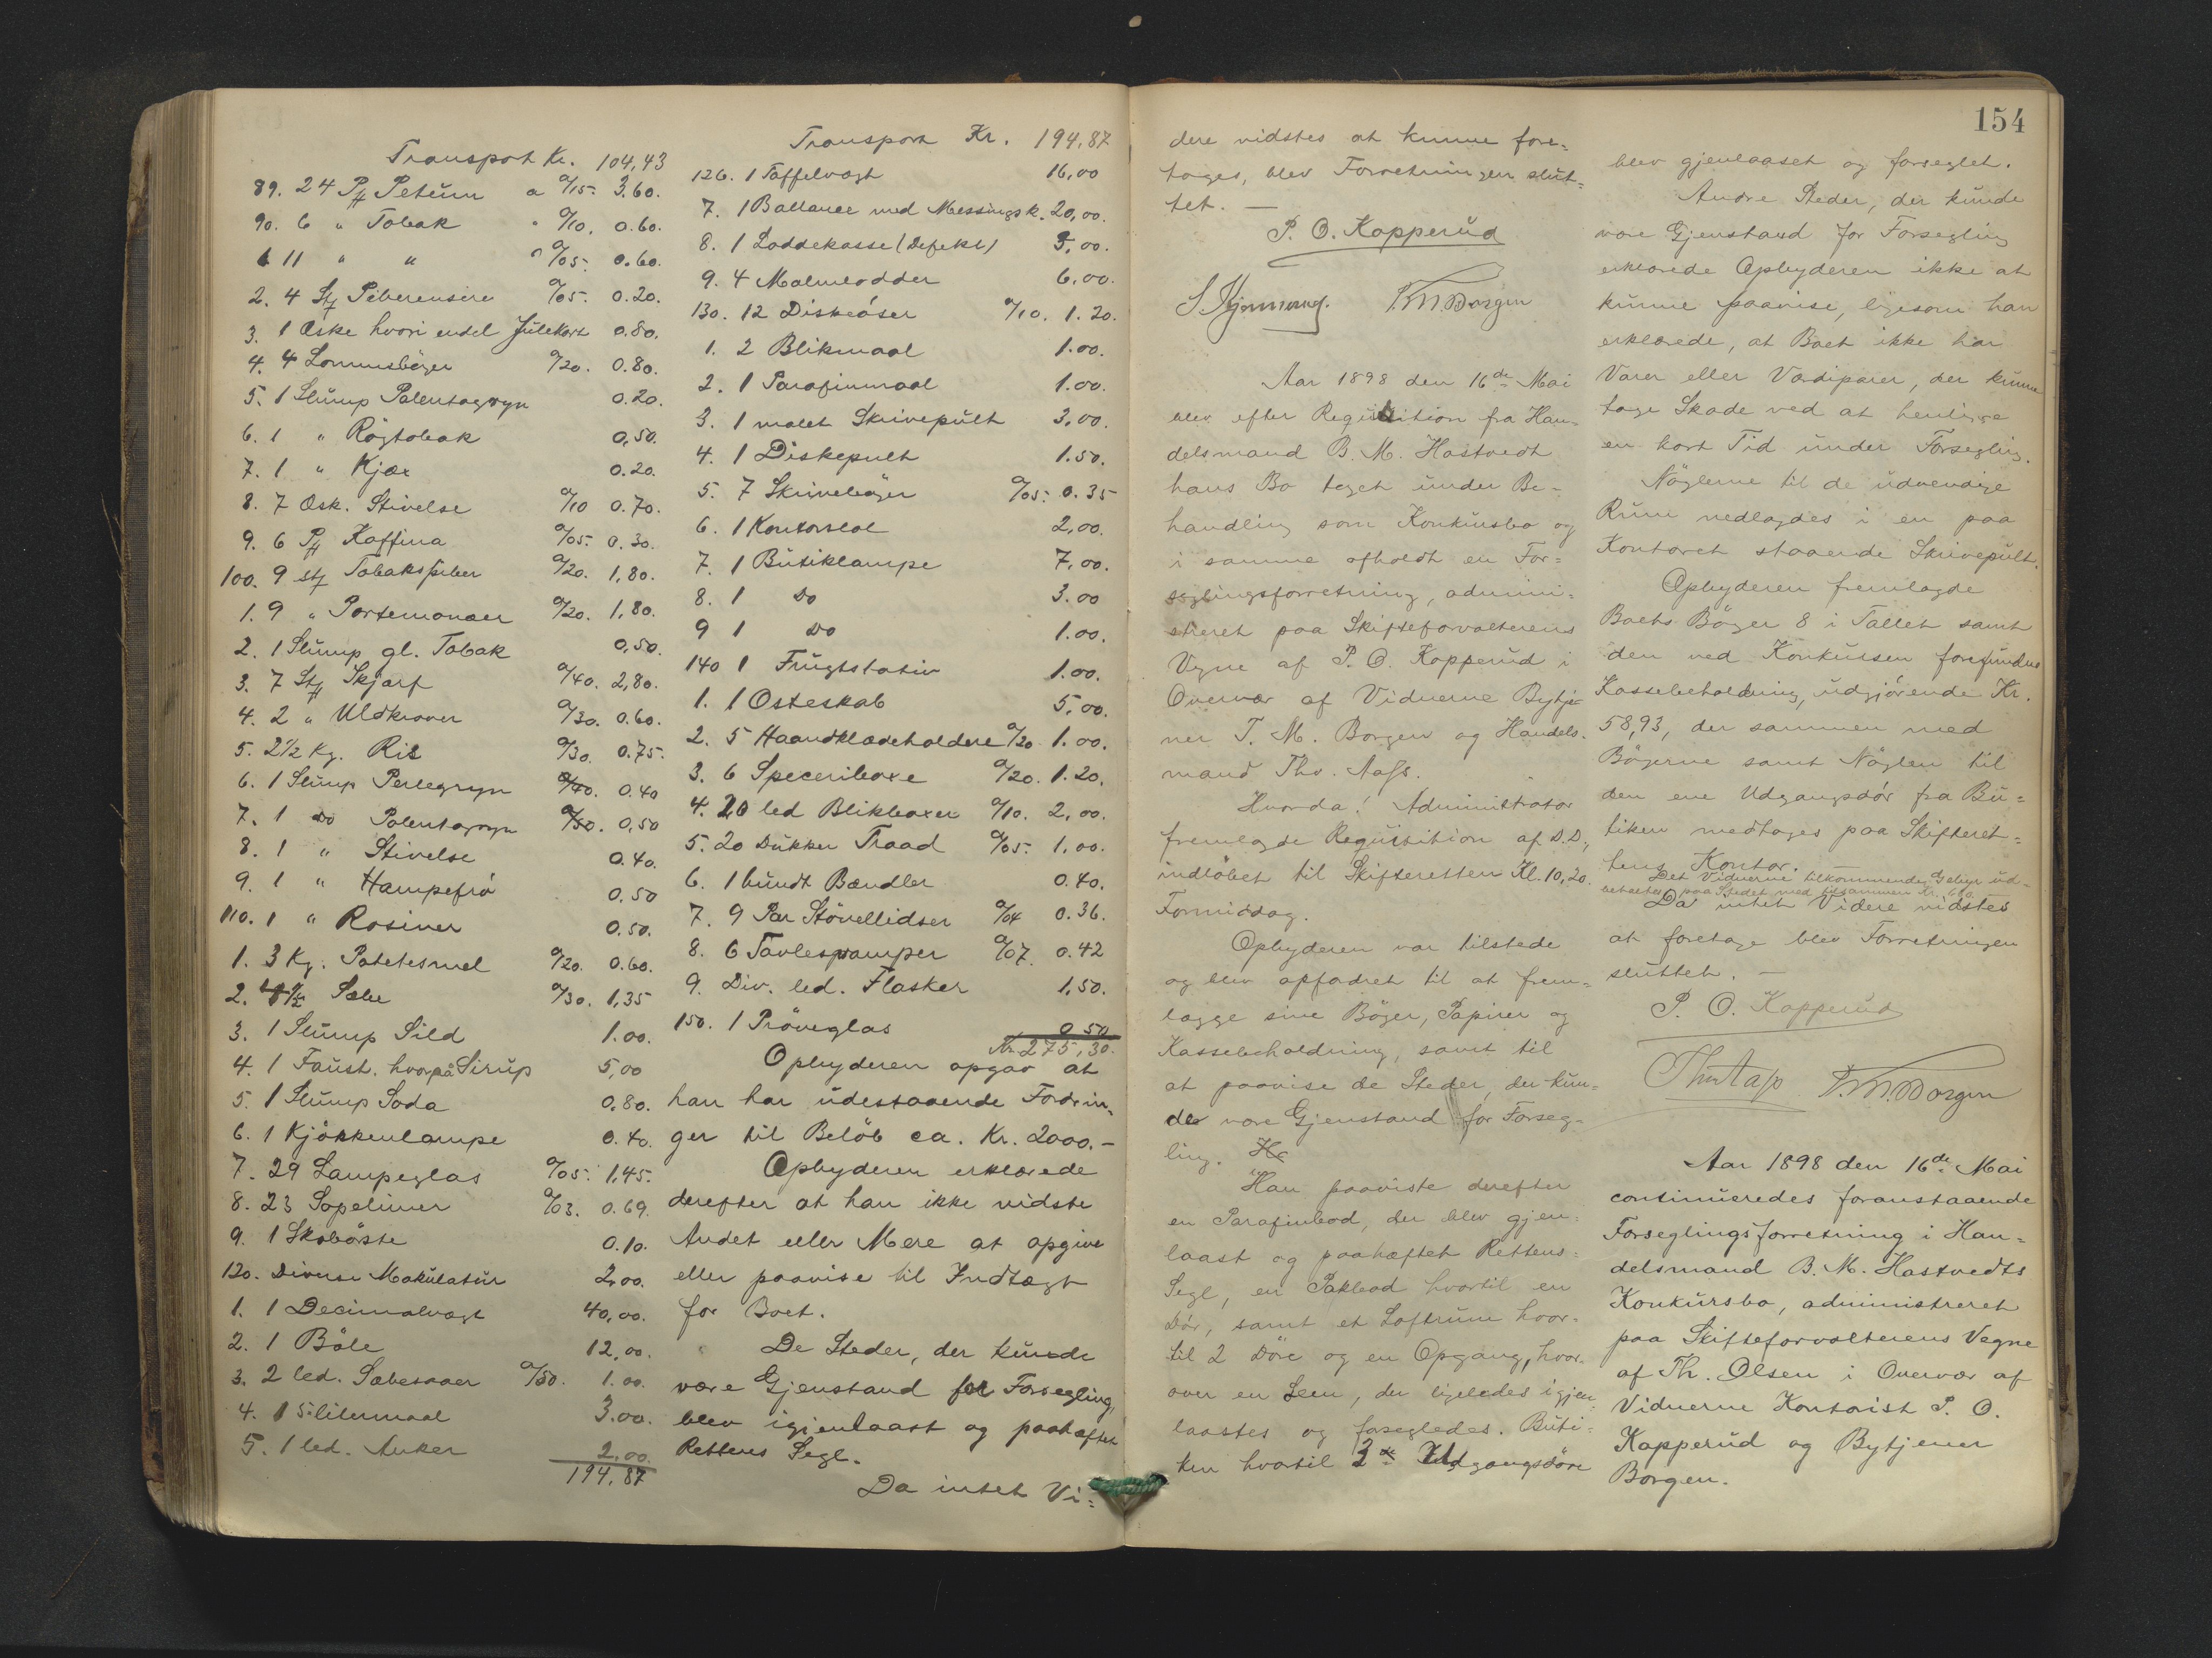 Transport Kr. 104,43
89. 24 Pk Petum a a/15. 3.60.
90. 6 " Tobak " a/10. 0.60.
1 11 " " a/05. 0.60.
2. 4 Stk Piberensere a/05. 0.20.
3. 1 Æske hvori endel Julekort 0.80.
4. 4 Lommebøger a/20. 0.80.
5. 1 Slump Palentagryn 0.20.
6. 1 " Røgtobak 0,50.
7. 1 " Kjæx 0.20.
8. 7 Æsk. Stivelse a/10 0.70.
9. 6 Pk Kaffina a/05. 0.30.
100. 9 stk Tobakspiber a/20. 1,80.
1. 9 " Portemonæer a/20. 1,80.
2. 1 Slump gl. Tobak 0,50.
3. 7 Stk Skjærf a/40. 2,80.
4. 2 " Uldkraver a/30. 0.60.
5. 2½ Kg. Ris a/30. 0.75.
6. 1 Slump Perlegryn a/40. 0.40
7. 1 Do Palentagryn a/50. 0,50
8. 1 " Stivelse 0.40.
9. 1 " Hampefrø 0.50
110. 1 " Rosiner 0.50.
1. 3 Kg. Potetesmel a/20. 0.60.
2. 4½ Sæbe a/30. 1,35
3. 1 Slump Sild 1.00.
4. 1 Faust. hvorpå Sirup 5,00
5. 1 Slump Soda 0.80.
6. 1 Kjøkkenlampe 0.40.
7. 29 Lampeglas a/05. 1,45.
8. 23 Sopelimer a/03. 0.69.
9. 1 Skobøste 0.10.
120. Diverse Makulatur 2,00.
1. 1 Decimalvægt 40,00.
2. 1 Bøle 12,00.
3. 2 led. Sæbesaaer a/50. 1.00.
4. 1 5 litermaal 3.00.
5. 1 led. Anker 2,00.
194,87
Transport Kr. 194,87
126. 1 Taffelvægt 16,00
7. 1 Ballance med Messingsk. 20,00.
8. 1 Loddekasse (Defekt) 3,00.
9. 4 Malmlodder 6,00.
130. 12 Diskdåser a/10. 1.20.
1. 2 Blikmaal 1.00.
2. 1 Parafinmaal 1.00.
3. 1 malet Skrivepult 3,00.
4. 1 Diskepult 1.50.
5. 7 Skrivebøger a/05. 0.35
6. 1 Kontorstol 2,00.
7. 1 Butiklampe 7,00.
8. 1 Do 3.00
9 1 Do 1.00.
140 1 Frugtstativ 1.00.
1. 1 Osteskab 5,00.
2. 5 Haandklædeholdere a/20. 1.00.
3. 6 Speceriboxe a/20. 1.20.
4. 20 led Blikboxer a/10. 2,00.
5. 20 Dukker Traad a/05. 1,00.
6. 1 bundt Bændler 0.40.
7. 9 Par Støvellidser a/04 0.36.
8. 6 Tavlesvamper a/07. 0.42
9. Div. led. Flasker 1,50.
150. 1 Prøveglas 0.50
Kr. 275,30.
Opbyderen opgav at
han har udestaaende Fordrin-
ger til Beløb ca. Kr. 2000.-
Opbyderen erklærede
derefter at han ikke vidste
Andet eller Mere at opgive
eller paavise til Indtægt
for Boet.
De Steder, der kunde
være Gjenstand for Forsegling,
blev igjenlaast og paahæftet
Rettens Segl.
Da intet Vi=
154
dere vidstes at kunne fore=
tages, blev Forretningen slut=
tet. —
P. O. Kapperud
T. M. Borgen
Aar 1898 den 16de Mai
blev efter Requisition fra Han-
delsmand B. M. Hastvedt
hans Bo taget under Be-
handling som Konkursbo og
i samme afholdt en For=
seglingsforretning, admini=
streret paa Skifteforvalterens
Vegne af P. O. Kapperud i
Overvær af Vidnerne Bytje-
ner T. M. Borgen og Handels-
mand Thv. Aass.
Hvorda! Administrator
fremlagde Requisition af D.D.,
indløbet til Skifteretten Kl. 10,20
Formiddag.
Opbyderen var tilstede
og blev opfordret til at frem=
lægge sine Bøger, Papirer og
Kassebeholdning, samt til
at paavise de Steder, der kun=
de være Gjenstand for Forseg-
ling. Ha
Han paaviste derefter
en Parafinbod, der blev gjen=
laast og paahæftet Rettens
Segl, en Pakbod hvortil en
Dør, samt et Loftrum hvor-
til 2 Døre og en Opgang, hvor-
over en Leem, der ligeledes igjen-
laastes og forsegledes. Buti=
ken hvortil 3de Udgangsdøre
blev gjenlaaset og forseglet.
Andre Steder, der kunde
være Gjenstand for Forsegling
erklærede Opbyderen ikke at
kunne paavise, ligesom han
erklærede, at Boet ikke har
Varer eller Værdiparer, der kunne
tage Skade ved at henligge
en kort Tid under Forsegling.
Nøglerne til de udvendige
Rum nedlagdes i en paa
Kontoret staaende Skrivepult.
Opbyderen fremlagde
Boets Bøger 8 i Tallet samt
den ved Konkursen forefundne
Kassebeholdning, udgjørende Kr.
58,93, der sammen med
Bøgerne samt Nøglen til
den ene Udgangsdør fra Bu=
tiken medtages paa Skifteret=
tens Kontor.
Det Vidnerne tilkommende Gebyr ud-
betaltes paa Stedet med tilsammen Kr. 1,60
Da intet Videre vidstes
at foretage blev Forretningen
sluttet. —
P. O. Kapperud
Thv Aass T. M. Borgen
Aar 1898 den 16de Mai
continueredes foranstaaende
Forseglingsforretning i Han=
delsmand B. M. Hastvedts
Konkursbo, administreret
paa Skifteforvalterens Vegne
af Th. Olsen i Overvær af
Vidnerne Kontorist P. O.
Kapperud og Bytjener
Borgen.